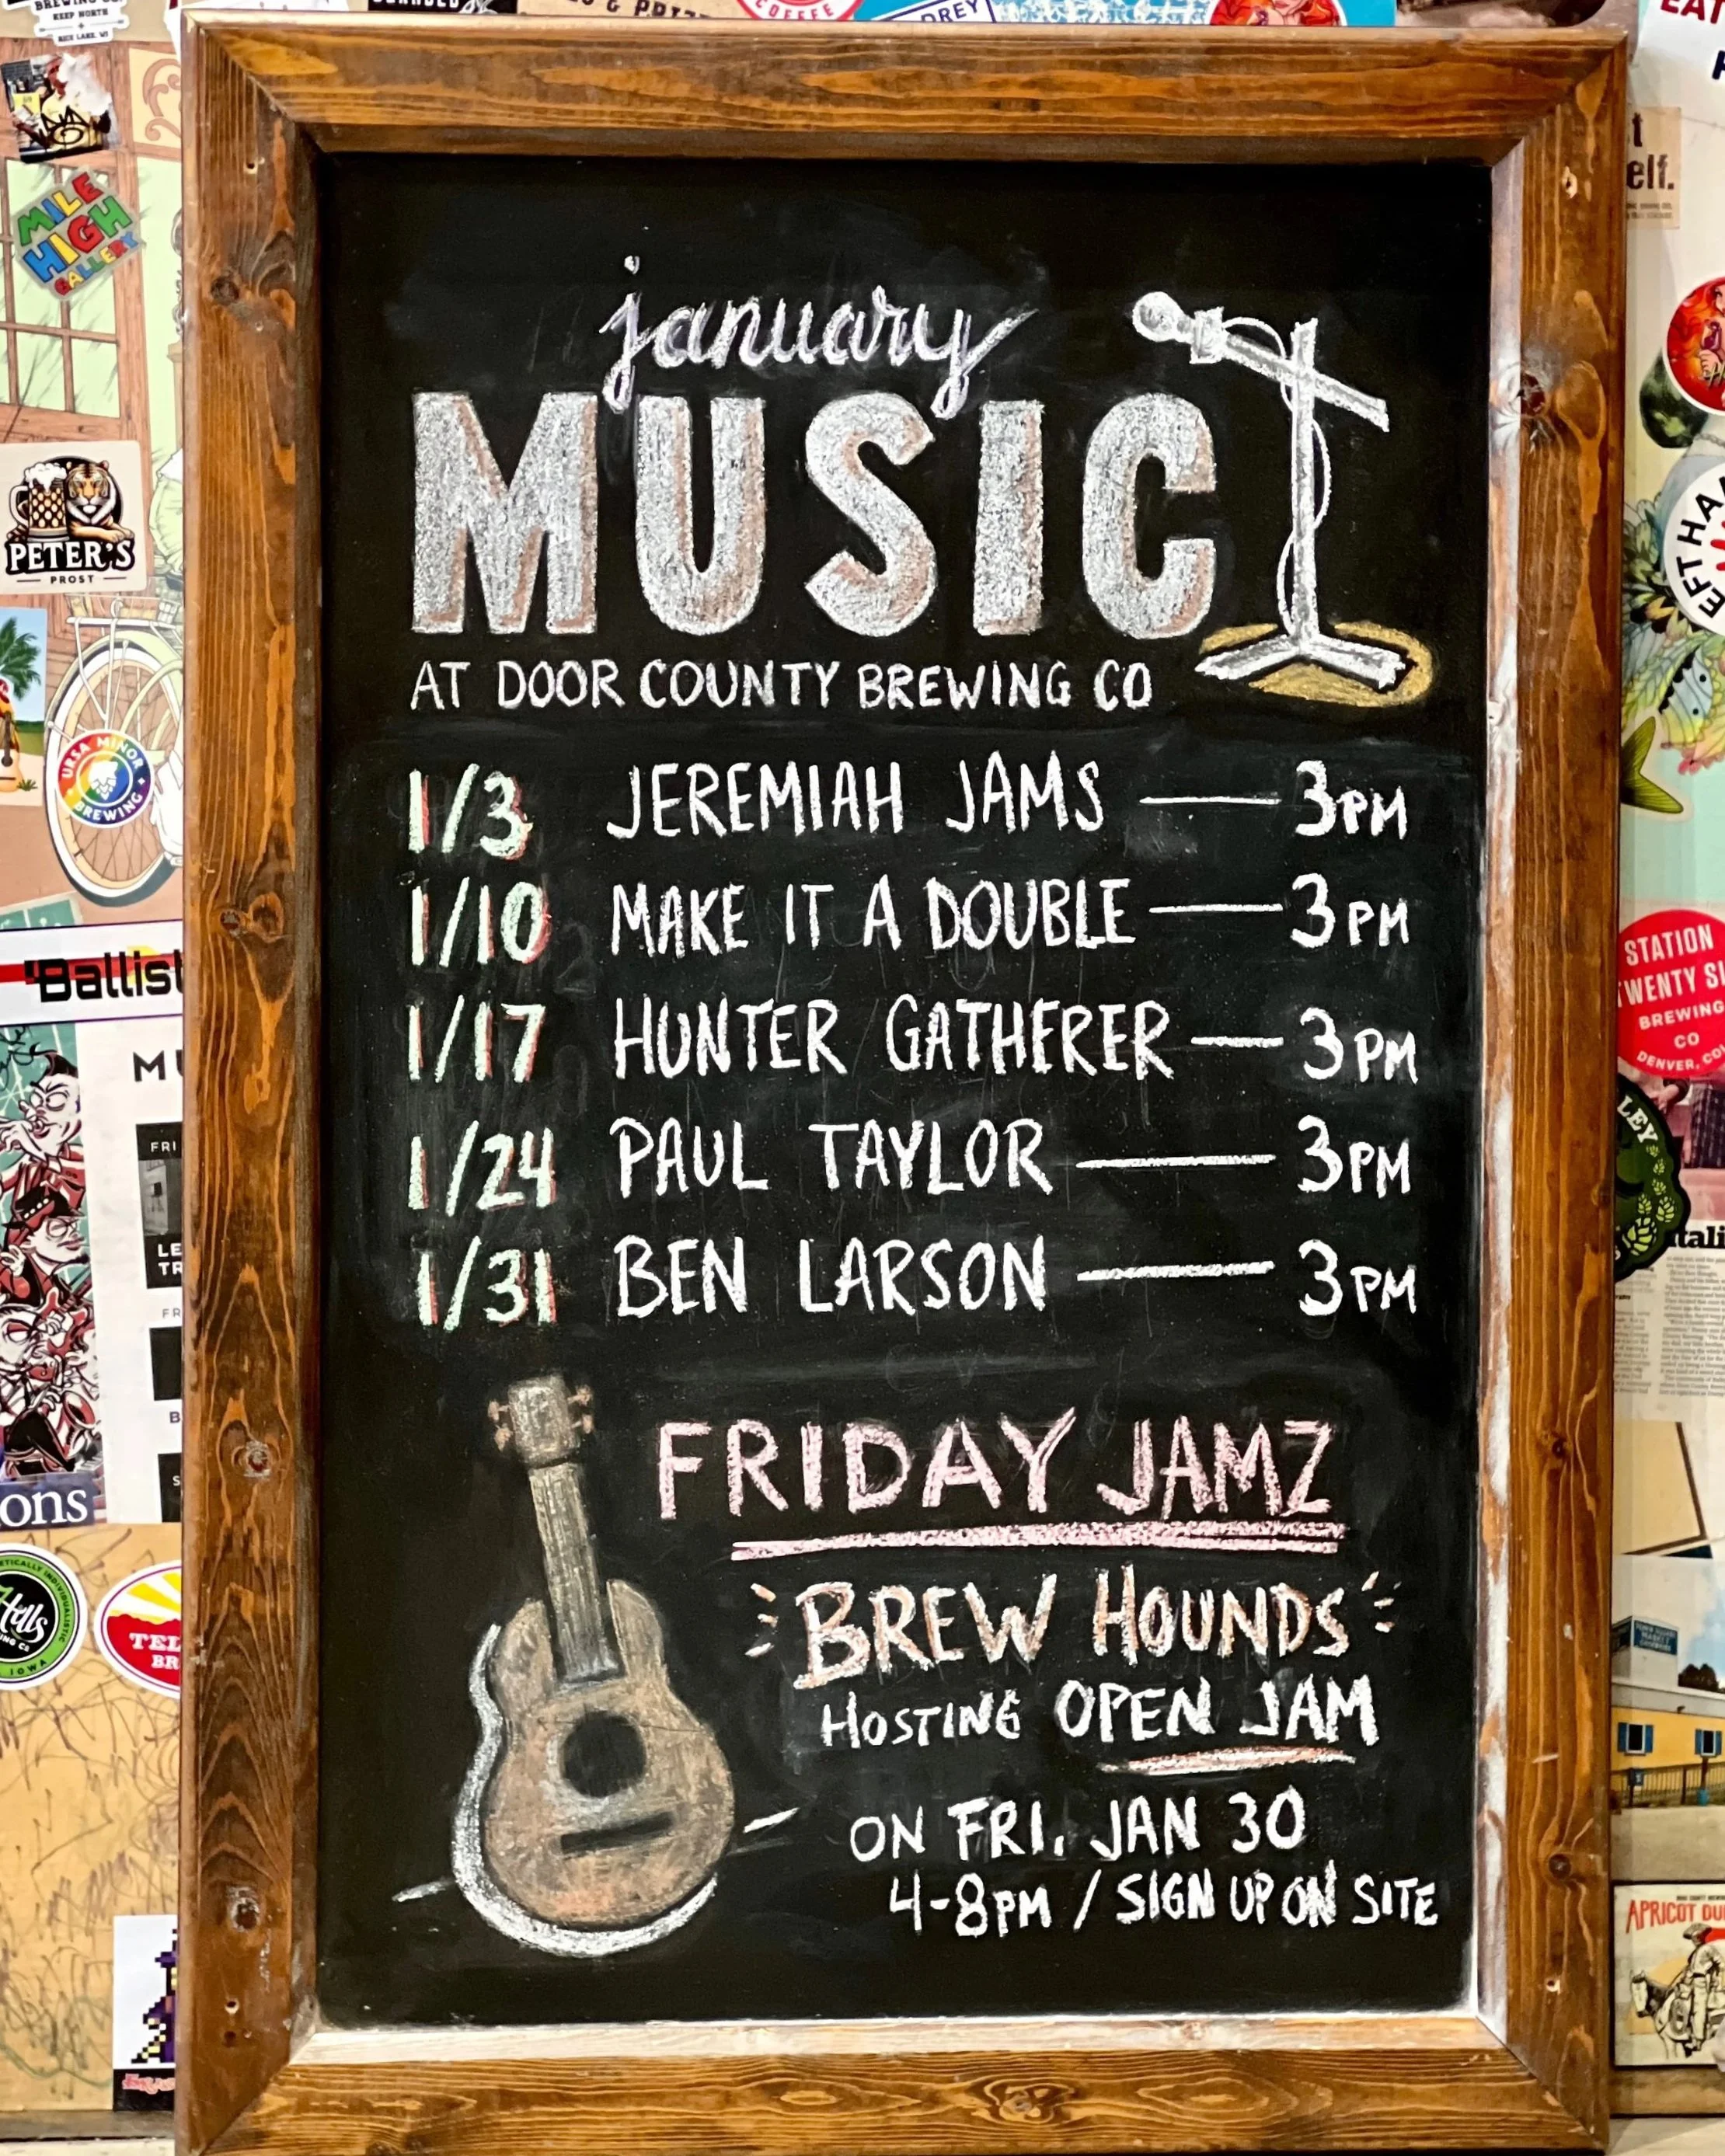 january
MUSIC
AT DOOR COUNTY BREWING CO
1/3 JEREMIAH JAMS — 3PM
1/10 MAKE IT A DOUBLE — 3PM
1/17 HUNTER GATHERER — 3PM
1/24 PAUL TAYLOR — 3PM
1/31 BEN LARSON — 3PM
FRIDAY JAMZ
BREW HOUNDS
HOSTING OPEN JAM
ON FRI. JAN 30
4-8PM / SIGN UP ON SITE
KEEP NORTH
RICE LAKE, WI
COFFEE
MILE
HIGH
GALLERY
PETER'S
PROST
URSA MINOR
BREWING
Ballist
FRI
ons
IOWA
TEL
BR
elf.
STATION
BREWING
CO
DENVER, CO
LEY
APRICOT